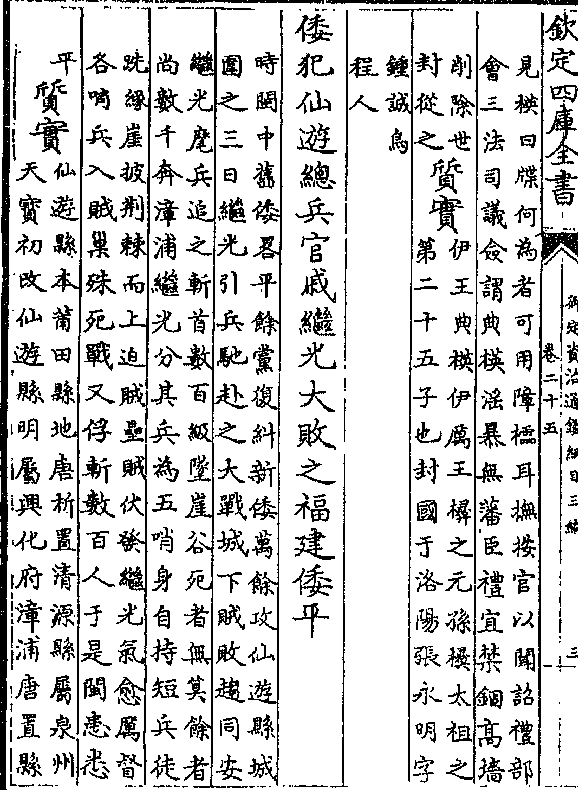 欽定四庫全書
御定資治通鑑綱目三編
卷二十五
三
見楧曰牒何為者可用障檽耳撫按官以聞詔禮部
會三法司議僉謂典楧淫暴無藩臣禮宜禁錮高墻
削除世
封從之
質實
伊王典楧伊厲王㰘之元孫㰘太祖之
第二十五子也封國于洛陽張永明字
鍾誠烏
程人
倭犯仙遊總兵官戚繼光大敗之福建倭平
時閩中舊倭畧平餘黨復糾新倭萬餘攻仙遊縣城
圍之三日繼光引兵馳赴之大戰城下賊敗趨同安
繼光麾兵追之斬首數百級墜崖谷死者無算餘者
尚數千奔漳浦繼光分其兵為五哨身自持短兵徒
跣緣崖披荆棘而上迫賊壘賊伏發繼光氣愈厲督
各哨兵入賊巢殊死戰又俘斬數百人于是閩患悉
平
質實
仙遊縣本莆田縣地唐析置清源縣屬泉州
天寶初改仙遊縣明屬興化府漳浦唐置縣